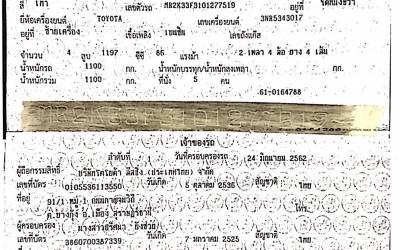 สี เทา เลขตัวรถ MR2K33F3101277519 อยู่ที่
ยี่ห้อเครื่องยนต์ TOYOTA เลขเครื่องยนต์ 3NR5343017
อยู่ที่ ซ้ายเครื่อง เชื้อเพลิง เบนซิน เลขถังแก๊ส
จำนวน 4 สูบ 1197 ซีซี 86 แรงม้า 2 เพลา 4 ล้อ ยาง 4 เส้น
น้ำหนักรถ 1100 กก. น้ำหนักบรรทุก/น้ำหนักลงเพลา กก.
น้ำหนักรวม 1100 กก. ที่นั่ง 5 คน
61-0164788
เจ้าของรถ
ลำดับที่ 1 วันที่ครอบครองรถ 24 มิถุนายน 2562
ผู้ถือกรรมสิทธิ์ (ประเทศไทย) จำกัด
เลขที่บัตร 0105536113550 วันเกิด 5 ตุลาคม 2536 สัญชาติ ไทย
ที่อยู่ 91/1 หมู่ 1
อ.เมือง สุราษฎร์ธานี
ผู้ครอบครอง นางสาว
เลขที่บัตร 3860700387339 วันเกิด 7 มกราคม 2525 สัญชาติ ไทย